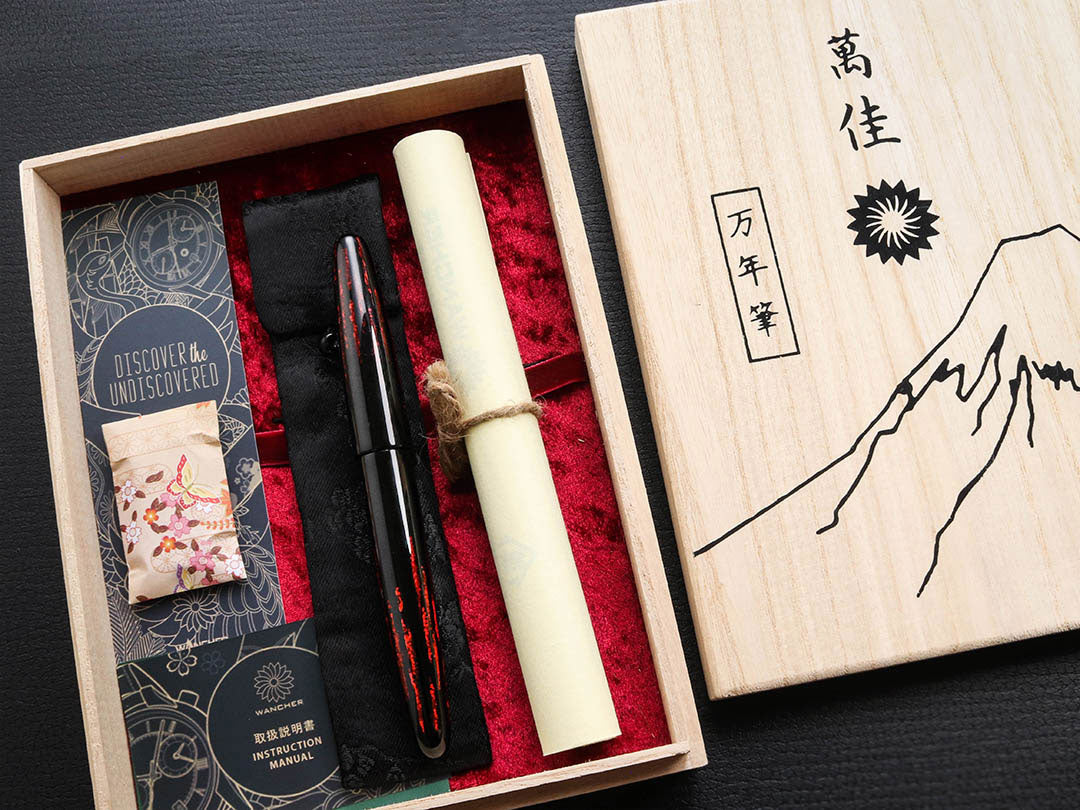 DISCOVER the
UNDISCOVERED
WANCHER
WANCHER
取扱説明書
INSTRUCTION
MANUAL
萬佳
万年筆